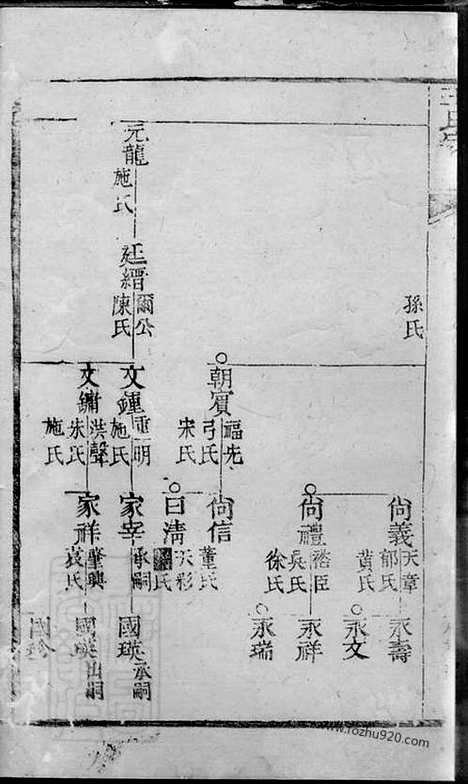 孫氏
尚義
天章
郁氏
黄氏
永壽
永文
尚禮
裕臣
吳氏
徐氏
永祥
永瑞
朝賓
福先
弓氏
宋氏
尚信
董氏
曰清
天彩
氏
元龍
施氏
廷縉
爾公
陳氏
文鐘
重明
施氏
家宰
承嗣
國瑛
承嗣
文鏞
洪聲
朱氏
施氏
家祥
肇興
袁氏
國瑛
出嗣
國珍
www.fozhu920.com